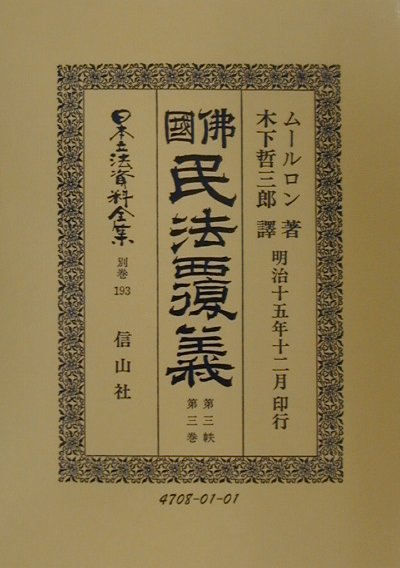 ムールロン 著
木下哲三郎 譯
明治十五年十二月 印行
佛國
民法覆義
第三帙
第三巻
日本立法資料全集
別巻
193
信山社
4708-01-01